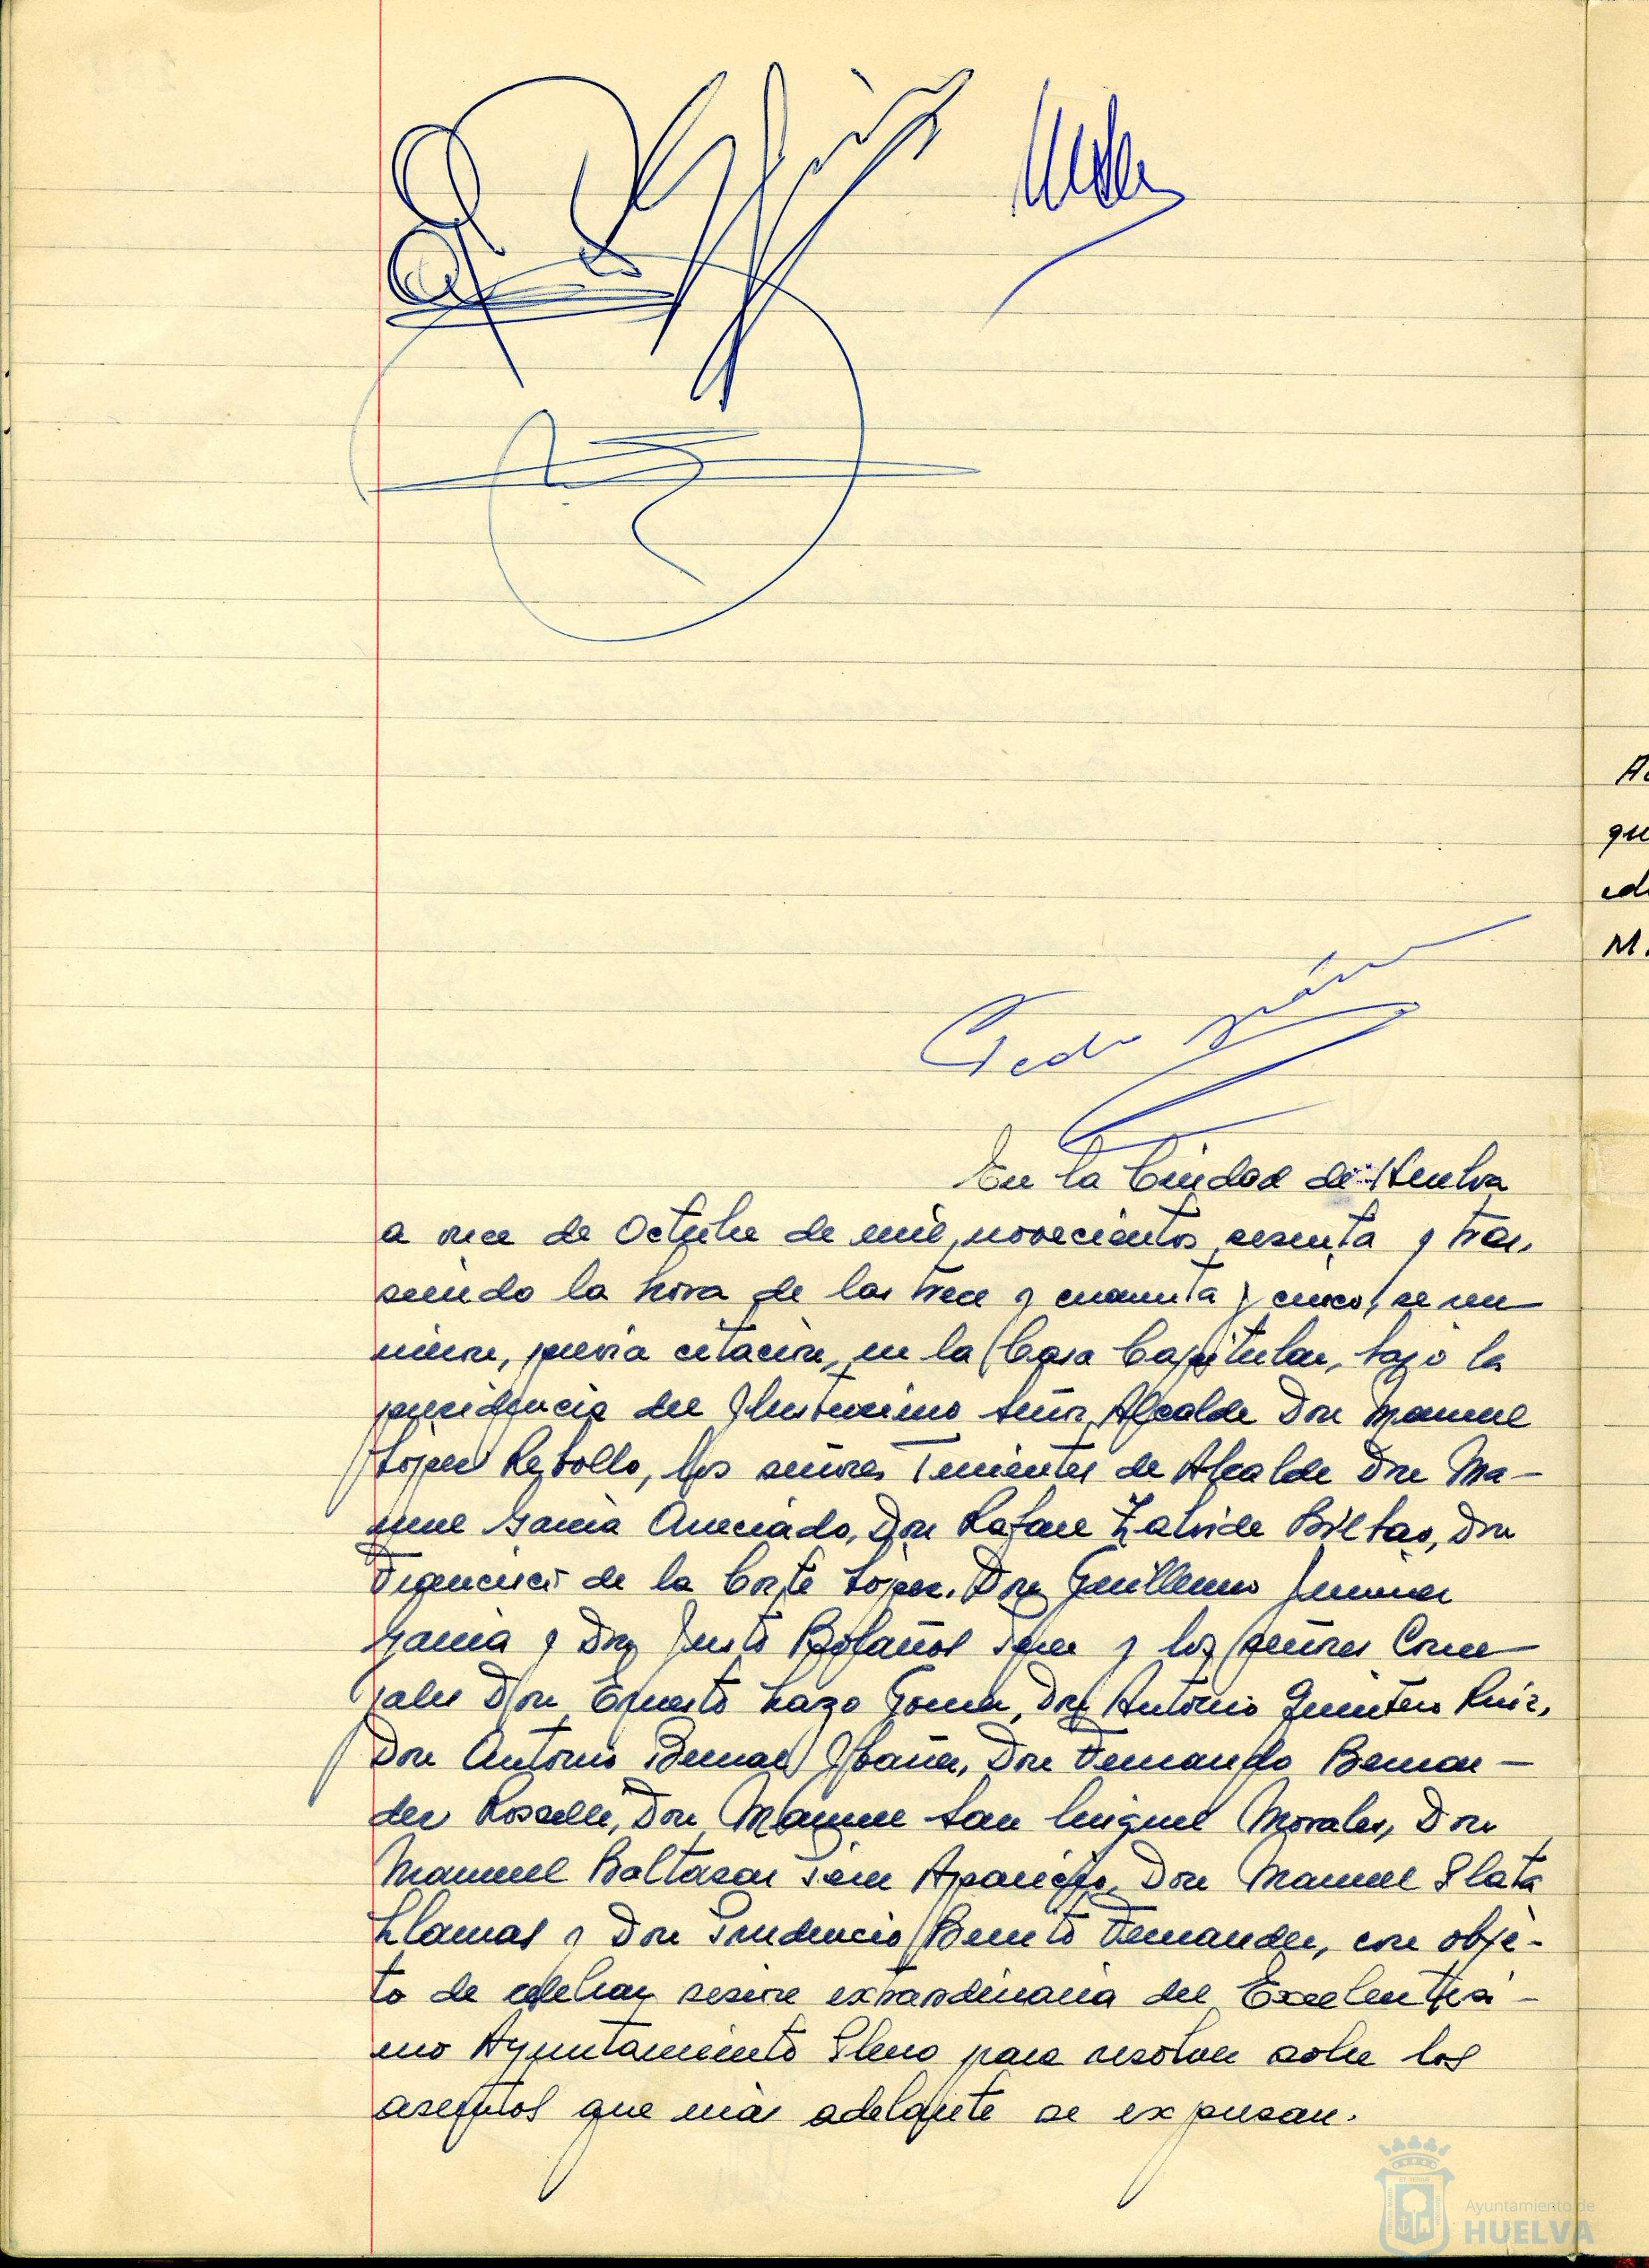 Pedro
En la Ciudad de Huelva
a once de Octubre de mil novecientos sesenta y tres,
siendo la hora de las trece y cuarenta y cinco, se reu
nieron, previa citación, en la Casa Capitular, bajo la
presidencia del Ilustrisimo Señor Alcalde Don Manuel
López Rebollo, los señores Tenientes de Alcalde Don Ma-
nuel Garcia Aneciado, Don Rafael Zalvide Bilbao, Don
de la Corte López, Don Guillermo Jimenez
Garcia y Don Justo Bolaños y los señores Conce
jales Don Ernesto Lazo Gomez, Don Antonio Quintero Ruiz,
Don Antonio Bernal Ibañez, Don Fernando Bernar-
dez Rosselló, Don Manuel San Miguel Morales, Don
Manuel Baltasar Aparicio, Don Manuel Plata
Llamas y Don Prudencio Benito Fernandez, con obje-
to de celebrar sesion extraordinaria del Excelentisi-
mo Ayuntamiento Pleno para resolver sobre los
asuntos que más adelante se expresan.
A
qu
M.
Ayuntamiento de
HUELVA